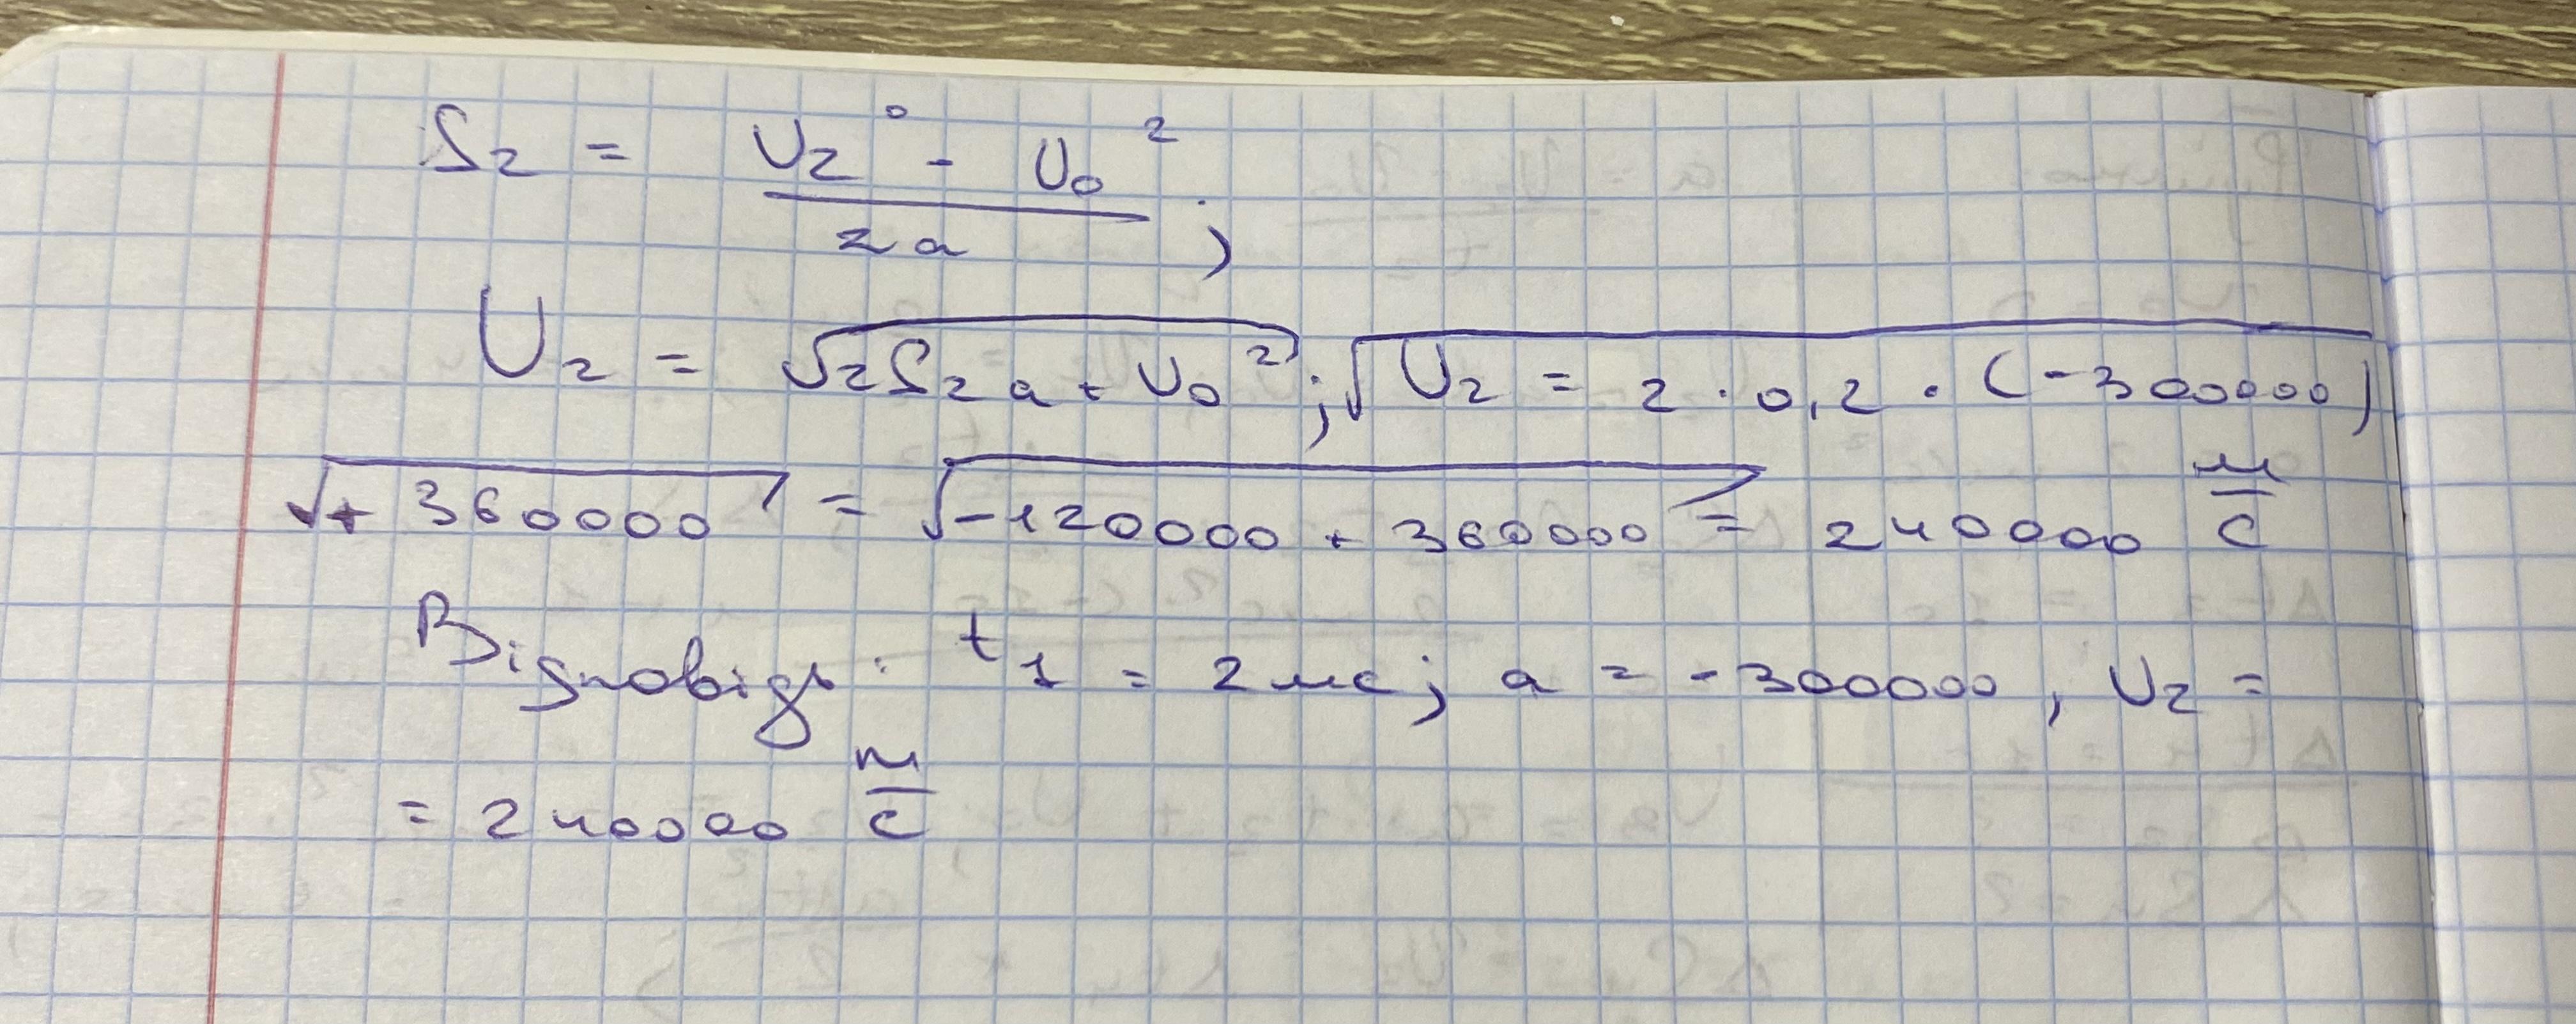 S₂ = (υ₂° - υ₀²) / 2a ;
υ₂ = √(2S₂a + υ₀²) ; √(υ₂ = 2 · 0,2 · (-300000))
√(+ 360000) = √(-120000 + 360000) = 240000 м/с
Відповідь: t₁ = 2 мс; a = -300000, υ₂ =
= 240000 м/с